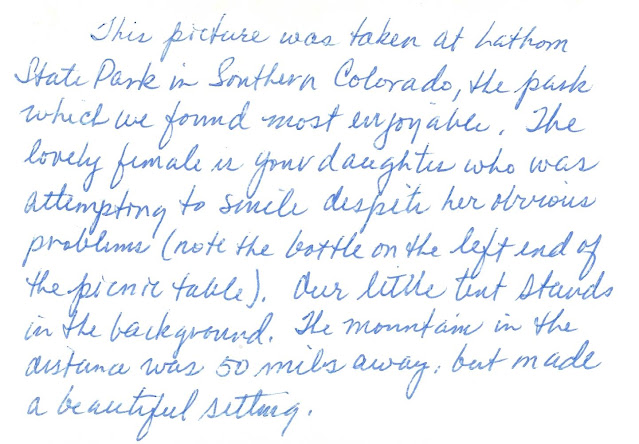 This picture was taken at Lathom
State Park in Southern Colorado, the park
which we found most enjoyable. The
lovely female is your daughter who was
attempting to smile despite her obvious
problems (note the bottle on the left end of
the picnic table). Our little tent stands
in the background. The mountain in the
distance was 50 miles away, but made
a beautiful setting.